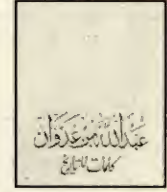 عبد الله بن عدوان
كلمات للتاريخ